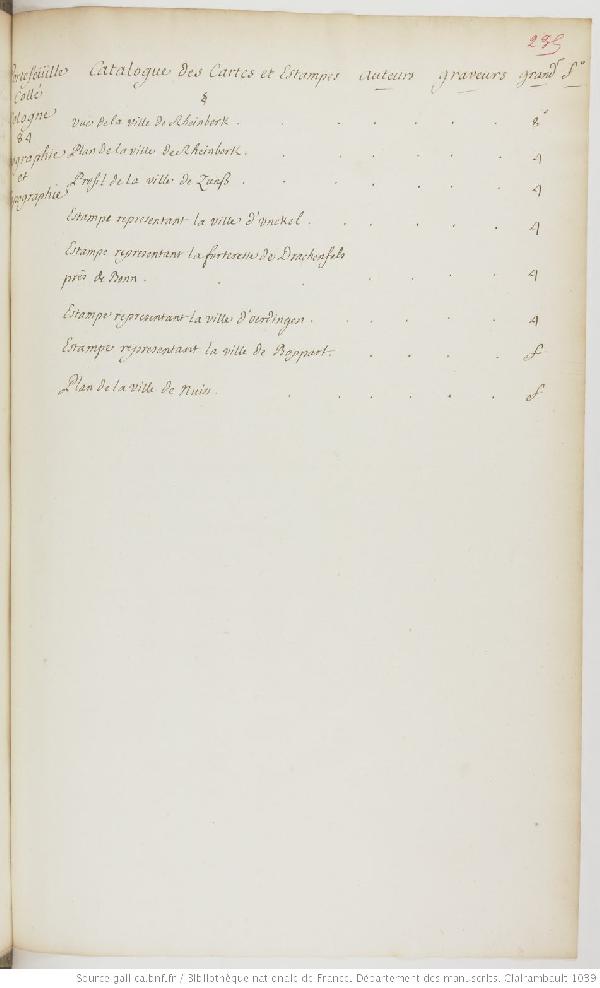 235
Portefeüille Catalogue des Cartes et Estampes auteurs graveurs grand fº
Collé
Cologne
84
et
vüe de la ville de Rheinberk . 8º
Plan de la ville de Rheinberk . 4
Profil de la ville de Zunß . 4
Estampe representant la ville d'unckel . 4
Estampe representant la forteresse de Drachenfels
près de Bonn . 4
Estampe representant la ville d'oerdingen . 4
Estampe representant la ville de Boppart . f
Plan de la ville de Nuis . f
Source gallica.bnf.fr / Bibliothèque nationale de France. Département des manuscrits. Clairambault 1039